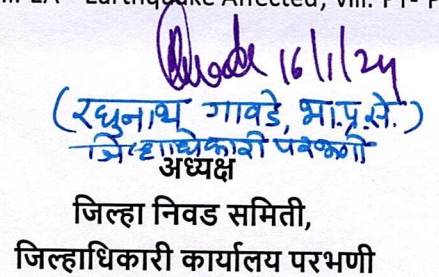 Earthquake Affected, viii. PT- P
16/1/24
(रघुनाथ गावडे, भा.प्र.से.)
जिल्हाधिकारी परभणी
अध्यक्ष
जिल्हा निवड समिती,
जिल्हाधिकारी कार्यालय परभणी